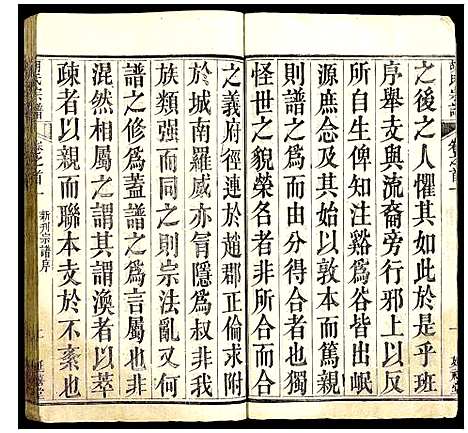 之後之人懼其如此於是乎班
序舉支與流裔旁行邪上反其
所自生俾知注谿爲谷皆出岷
源庶念及其始以敦本而貴實
則譜之義也
怪世之貌榮名者非所合而合
之義府徑連於趙郡正倫求附
於城南羅威亦冐隱爲叔非我
族類强而同之則宗法亂又何
譜之修爲蓋譜之爲言屬也非
混然相屬之謂其謂渙者以萃
疎者以親而聯本支於不紊也
胡氏宗譜
卷之首一
新刊宗譜序